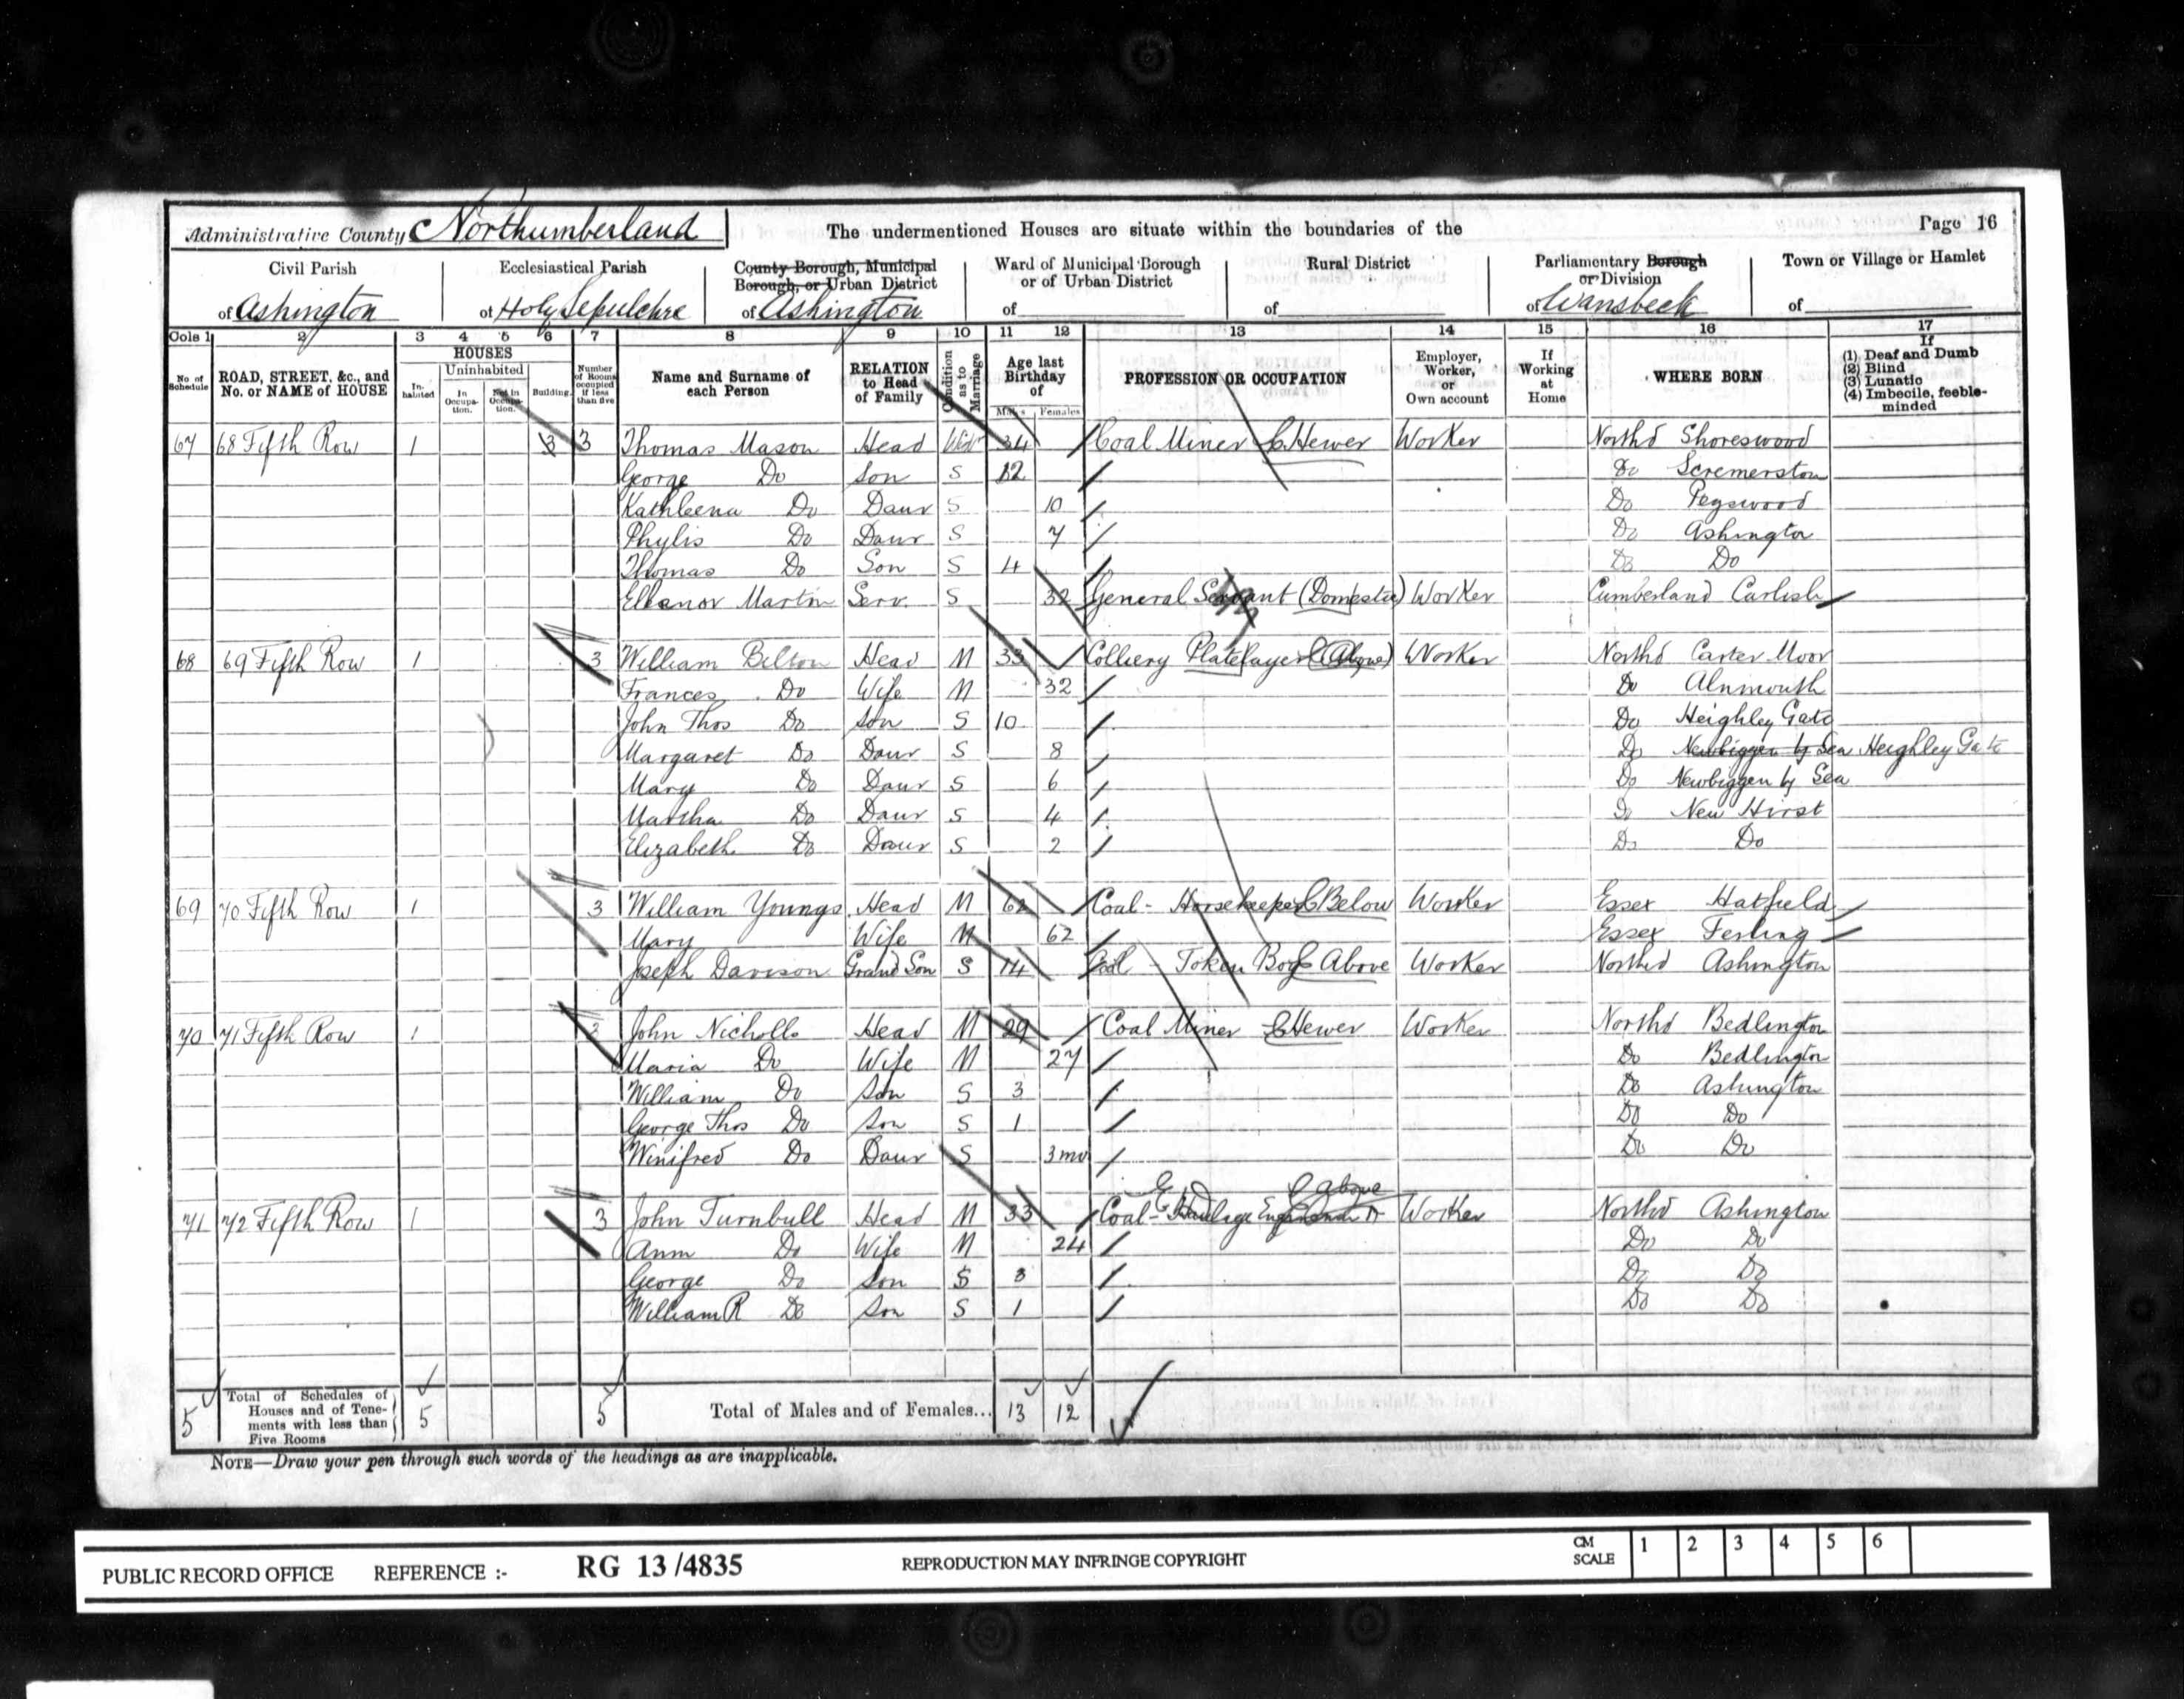 Administrative County Northumberland
The undermentioned Houses are situate within the boundaries of the
Page 16
Civil Parish of Ashington
Ecclesiastical Parish of Holy Sepulchre
County Borough, Municipal Borough, or Urban District of Ashington
Ward of Municipal Borough or of Urban District of
Rural District of
Parliamentary Borough or Division of Wansbeck
Town or Village or Hamlet of
Cols 1 2 3 4 5 6 7 8 9 10 11 12 13 14 15 16 17
No of Schedule
ROAD, STREET, &c., and No. or NAME of HOUSE
HOUSES
Inhabited
Uninhabited
In Occupation.
Not in Occupation.
Building.
Number of Rooms occupied if less than five
Name and Surname of each Person
RELATION to Head of Family
Condition as to Marriage
Age last Birthday of
Males Females
PROFESSION OR OCCUPATION
Employer, Worker, or Own account
If Working at Home
WHERE BORN
If (1) Deaf and Dumb (2) Blind (3) Lunatic (4) Imbecile, feeble-minded
67 68 Fifth Row 1 3 3 Thomas Mason Head Widr 34 Coal Miner Hewer Worker Northd Shoreswood
George Do Son S 12 Do Scremerston
Kathleena Do Daur S 10 Do Pegswood
Phylis Do Daur S 7 Do Ashington
Thomas Do Son S 4 Do Do
Eleanor Martin Serv. S 32 General Servant (Domestic) Worker Cumberland Carlisle
68 69 Fifth Row 1 3 William Bilton Head M 33 Colliery Platelayer (Above) Worker Northd Carter Moor
Frances Do Wife M 32 Do Alnmouth
John Thos Do Son S 10 Do Heighley Gate
Margaret Do Daur S 8 Do Newbiggen by Sea Heighley Gate
Mary Do Daur S 6 Do Newbiggen by Sea
Martha Do Daur S 4 Do New Hirst
Elizabeth Do Daur S 2 Do Do
69 70 Fifth Row 1 3 William Youngs Head M 62 Coal - Horsekeeper Below Worker Essex Hatfield
Mary Wife M 62 Essex Terling
Joseph Davison Grand Son S 14 Coal - Token Boy Above Worker Northd Ashington
70 71 Fifth Row 1 2 John Nicholls Head M 29 Coal Miner Hewer Worker Northd Bedlington
Maria Do Wife M 27 Do Bedlington
William Do Son S 3 Do Ashington
George Thos Do Son S 1 Do Do
Winifred Do Daur S 3 mo Do Do
above
71 72 Fifth Row 1 3 John Turnbull Head M 33 Coal - Haulage Worker Northd Ashington
Ann Do Wife M 24 Do Do
George Do Son S 3 Do Do
William R Do Son S 1 Do Do
5 Total of Schedules of Houses and of Tenements with less than Five Rooms 5 5 Total of Males and of Females... 13 12
NOTE—Draw your pen through such words of the headings as are inapplicable.
PUBLIC RECORD OFFICE REFERENCE :- RG 13/4835 REPRODUCTION MAY INFRINGE COPYRIGHT CM SCALE 1 2 3 4 5 6